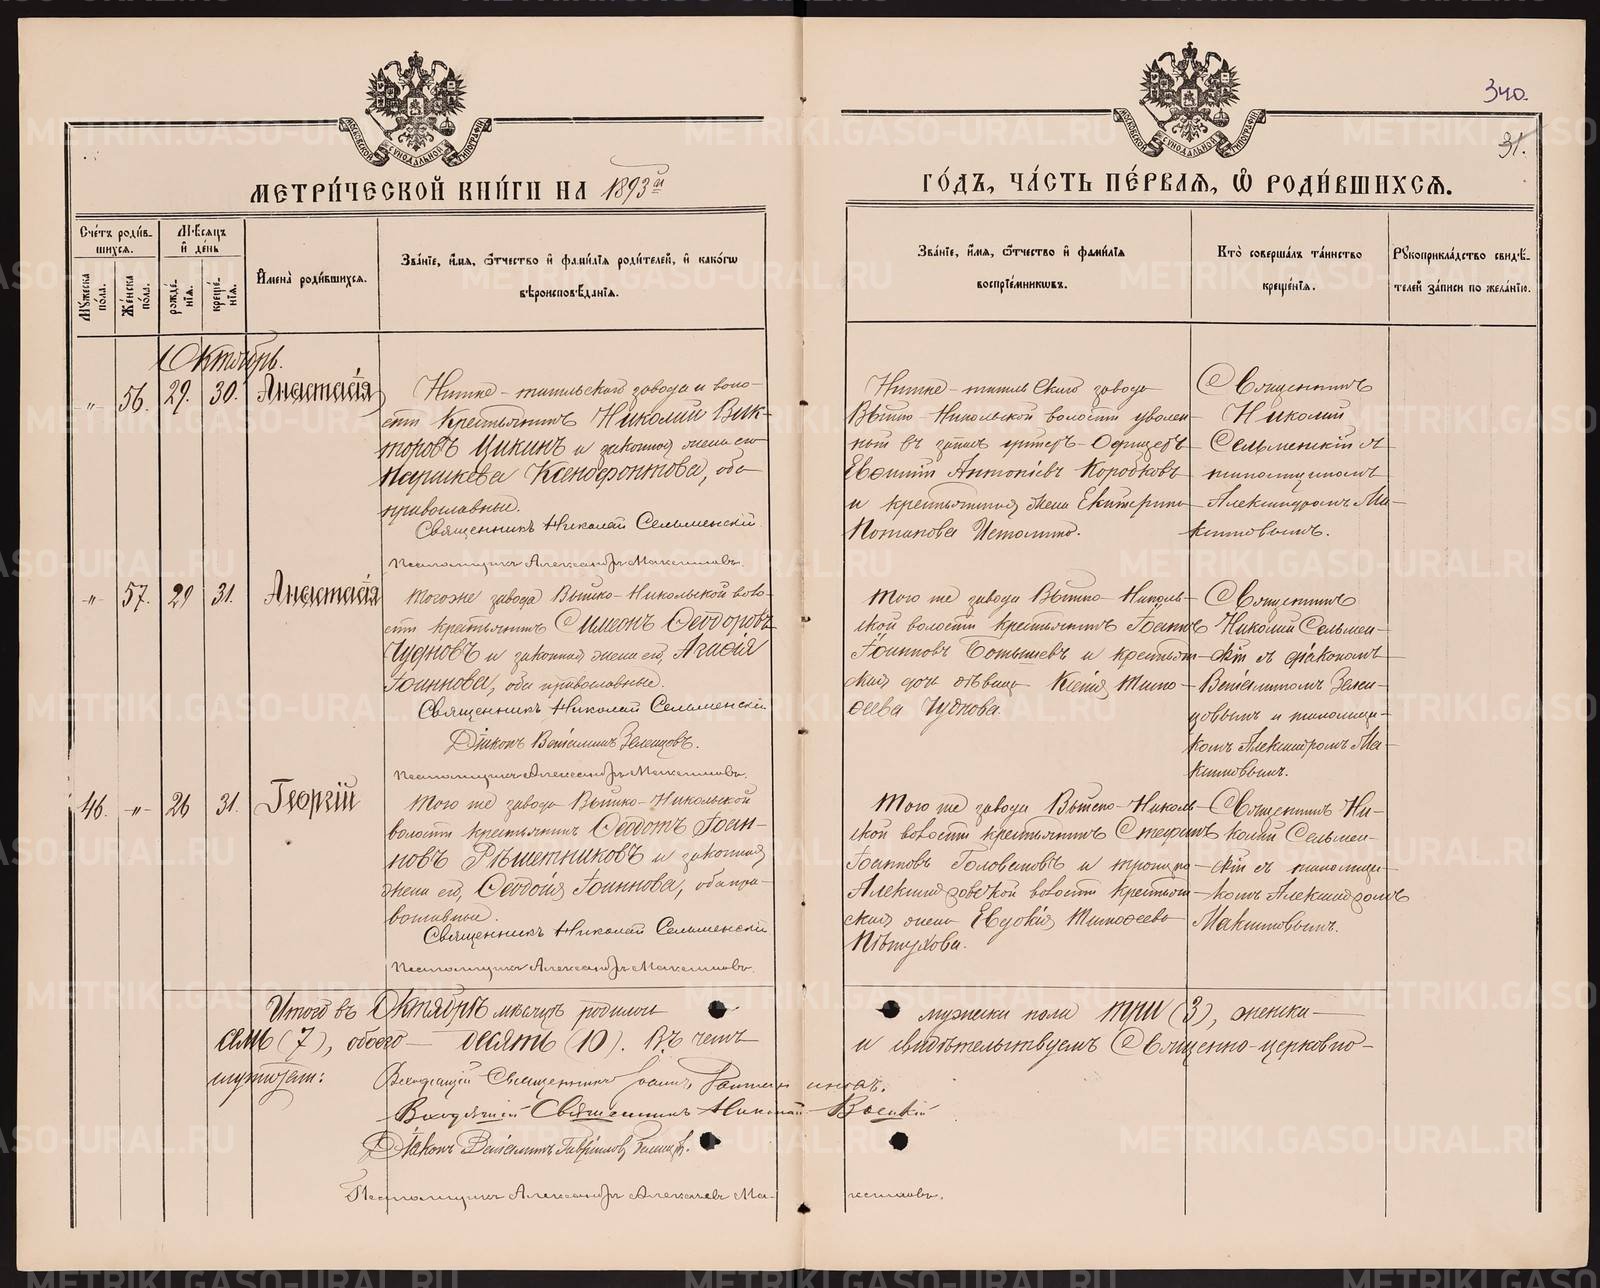 340.
31.
МОСКОВСКОЙ СУНОДАЛЬНОЙ ТИПОГРАФIИ
МОСКОВСКОЙ СУНОДАЛЬНОЙ ТИПОГРАФIИ
МЕТРИ́ЧЕСКОЙ КНИ́ГИ НА 1893й
ГО́ДЪ, ЧА́СТЬ ПЕ́РВАЯ, Ѡ҆ РОДИ́ВШИХСЯ.
Сче́тъ роди́в-
шихся.
Му́жеска по́ла.
Же́нска по́ла.
Мѣ́сяцъ
и҆ де́нь
рожде́-
нїя.
креще́-
нїя.
И҆мена̀ роди́вшихся.
Зва́нїе, и҆́мя, ѻ҆́тчество и҆ фами́лїя роди́телей, и҆ како́гѡ
вѣроисповѣ́данїя.
Зва́нїе, и҆́мя, ѻ҆́тчество и҆ фами́лїя
воспрїе́мникѡвъ.
Кто̀ соверша́лъ та́инство
креще́нїя.
Рукоприкла́дство свидѣ́-
телей за́писи по жела́нїю.
Октябрь.
-"- 56. 29. 30. Анастасія
Нижне-тагильскаго завода и воло-
сти крестьянинъ Николай Вик-
торовъ Цикинъ и законная жена его
Параскева Ксенофонтова, оба
православные.
Священникъ Николай Сельменскій
Псаломщикъ Александръ Макшановъ.
Нижне-тагильскаго завода
Выйско-Никольской волости уволен-
ный въ запасъ унтеръ-Офицеръ
Евѳимій Антоніевъ Коробковъ
и крестьянская жена Екатерина
Потапова
Священникъ
Николай
Сельменскій съ
псаломщикомъ
Александромъ
-"- 57. 29 31. Анастасія
Тогоже завода Выйско-Никольской воло-
сти крестьянинъ Симеонъ Ѳеодоровъ
Чудновъ и законная жена его, Агафія
Іоаннова, оба православные.
Священникъ Николай Сельменскій
Діаконъ
Псаломщикъ Александръ
Того же завода Выйско-Николь-
ской волости крестьянинъ Іоаннъ
Іоанновъ и крестьян-
ская дочь дѣвица Ксенія Тимо-
ѳеева Чуднова.
Священникъ
Николай Сельмен-
скій съ діакономъ
и псаломщи-
комъ Александромъ
46. -"- 26 31. Георгій
Того же завода Выйско-Никольской
волости крестьянинъ Ѳеодотъ Іоан-
новъ Рѣшетниковъ и законная
жена его, Ѳеодосія Іоаннова, оба пра-
вославные.
Священникъ Николай Сельменскій
Псаломщикъ Александръ
Того же завода Выйско-Николь-
ской волости крестьянинъ Стефанъ
Іоанновъ Головановъ и троицко-
Александровской волости крестьян-
ская жена Евдокія Тимоѳеева
Пѣтухова.
Священникъ Ни-
колай Сельмен-
скій съ псаломщи-
комъ Александромъ
Итого въ Октябрѣ мѣсяцѣ родилось мужеска пола три (3), женска—
семь (7), обоего— десять (10). Въ чемъ и свидѣтельствуемъ Священно-церковно-
служители:
Священникъ
Священникъ Николай
Діаконъ
Псаломщикъ Александръ
METRIKI.GASO-URAL.RU